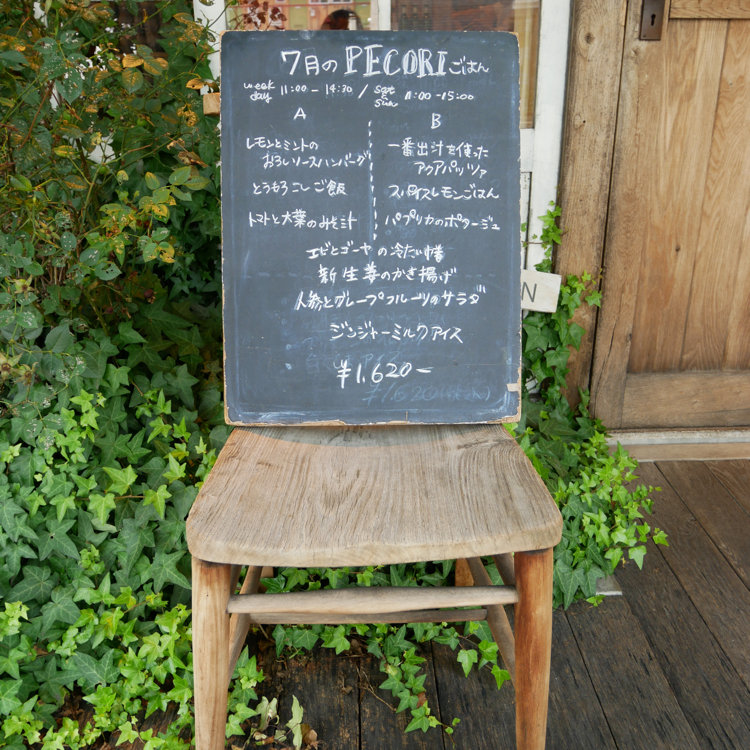 7月の PECORI ごはん
week day 11:00 - 14:30 / sat sun 11:00 - 15:00
A
レモンとミントの
おろしソースハンバーグ
とうもろこしご飯
トマトと大葉のみそ汁
B
一番出汁を使った
アクアパッツァ
スパイスレモンごはん
パプリカのポタージュ
エビとゴーヤの冷たい
新生姜のかき揚げ
人参とグレープフルーツのサラダ
ジンジャーミルクアイス
¥1,620-
N